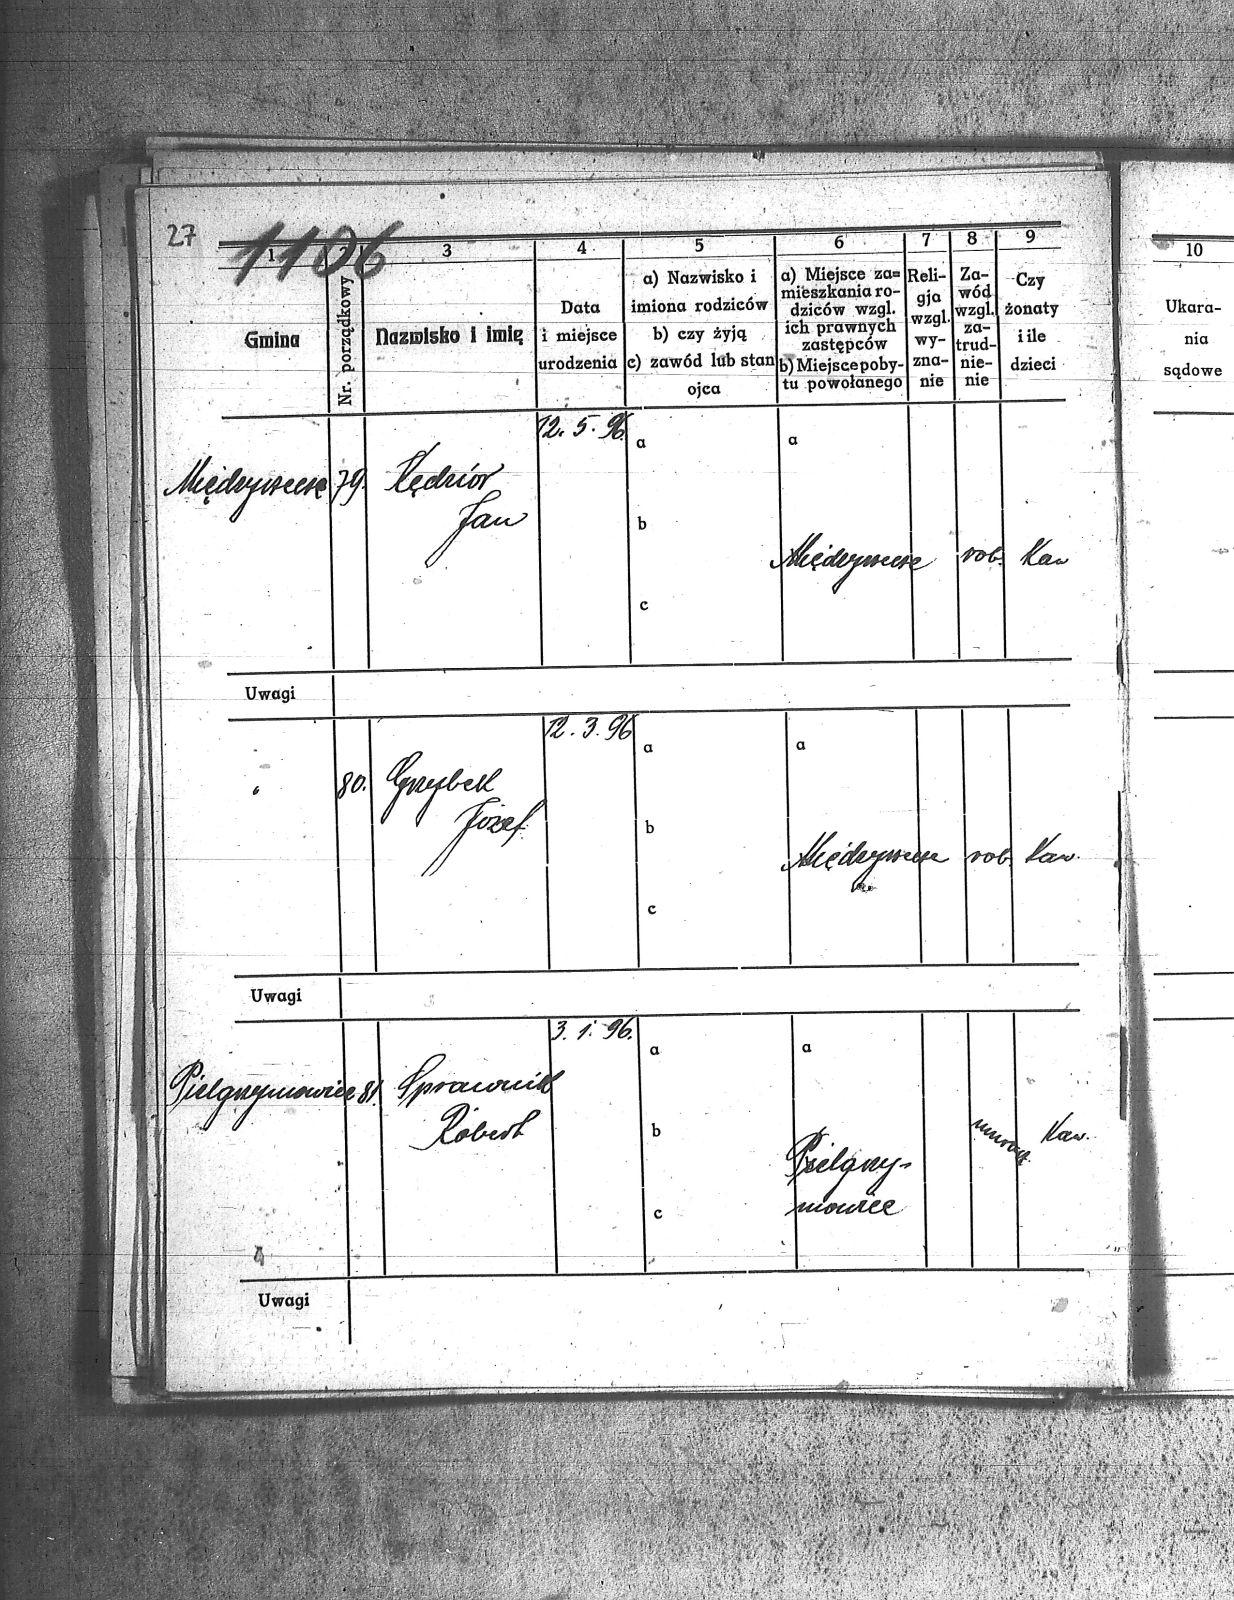 27
1106
1 2 3 4 5 6 7 8 9
Gmina
Nr. porządkowy
Nazwisko i imię
Data
i miejsce
urodzenia
a) Nazwisko i
imiona rodziców
b) czy żyją
c) zawód lub stan
ojca
a) Miejsce za=
mieszkania ro-
dziców wzgl.
ich prawnych
zastępców
b) Miejsce poby-
tu powołanego
Reli-
gja
wzgl.
wy-
zna-
nie
Za-
wód
wzgl.
za-
trud-
nie-
nie
Czy
żonaty
i ile
dzieci
10
Ukara-
nia
sądowe
12. 5. 96.
a a
Międzyrzecze 79. Kędzior
Jan
b
Międzyrzecze rob. Kaw
c
Uwagi
12. 3. 96
a a
" 80. Grzybek
Józef
b
Międzyrzecze rob. Kaw.
c
Uwagi
3. 1. 96.
a a
Pielgrzymowice 81. Sprawnik
Robert
b
murarz Kaw.
Pielgrzy-
mowice
c
Uwagi